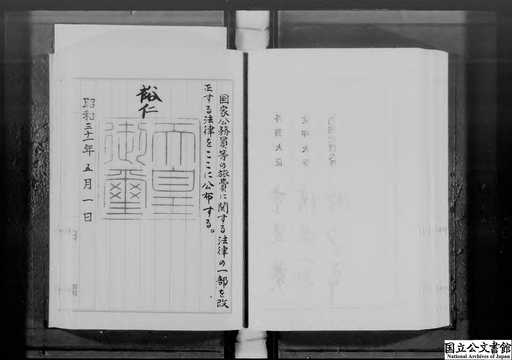 国家公務員等の旅費に関する法律の一部を改
正する法律をここに公布する。
裕仁
天皇
御璽
昭和三十一年五月一日
国立公文書館
National Archives of Japan